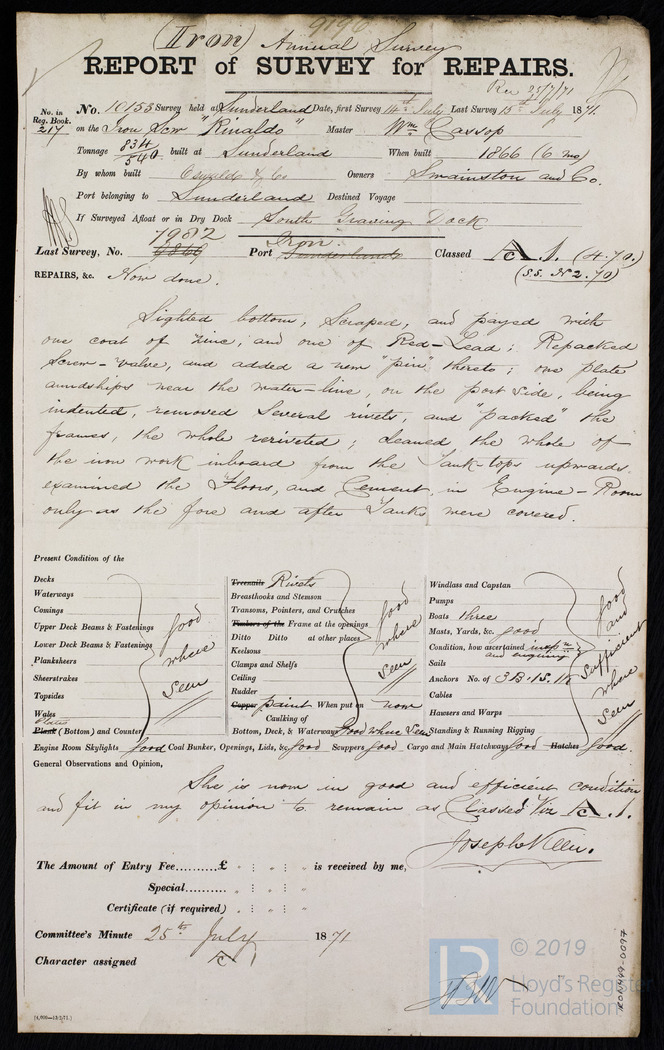 9196
(Iron) Annual Survey
REPORT of SURVEY for REPAIRS.
Rec 25/7/71
No. in Reg. Book. 217
No. 10153 Survey held at Sunderland Date, first Survey 14th July Last Survey 15th July 1871.
on the Iron Scw "Rinaldo" Master Wm Cassop
Tonnage 834/540 built at Sunderland When built 1866 (6 mo)
By whom built Oswald & Co Owners Swainston and Co.
Port belonging to Sunderland Destined Voyage
If Surveyed Afloat or in Dry Dock South Graving Dock
1982 Iron.
Last Survey, No. 9866 Port Sunderland Classed A 1. (4.70.)
(S.S. No 2. 70)
REPAIRS, &c. Now done.
Sighted bottom, Scraped, and payed with
one coat of Zinc, and one of Red-Lead; Repacked
Screw-valve, and added a new "pin" thereto; one plate
amidships near the water-line, on the port side, being
indented, removed several rivets, and "packed" the
frames, the whole reriveted; Cleaned the whole of
the iron work inboard from the Tank-tops upwards.
examined the Floors, and Cement, in Engine-Room
only as the fore and after Tanks were covered.
Present Condition of the
Decks
Waterways
Comings
Upper Deck Beams & Fastenings
Lower Deck Beams & Fastenings
Planksheers
Sheerstrakes
Topsides
Wales
Plates
Plank (Bottom) and Counter
good where seen
Treenails Rivets
Breasthooks and Stemson
Transoms, Pointers, and Crutches
Timbers of the Frame at the openings
Ditto Ditto at other places
Keelsons
Clamps and Shelfs
Ceiling
Rudder
Copper paint When put on now
Caulking of
Bottom, Deck, & Waterways Good where seen
good where seen
Windlass and Capstan
Pumps
Boats three
Masts, Yards, &c. good
Condition, how ascertained inspn and enquiry
Sails
Anchors No. of 3B. 1S. 1K
Cables
Hawsers and Warps
Standing & Running Rigging
good and sufficient where seen
Engine Room Skylights good Coal Bunker, Openings, Lids, &c. good Scuppers good Cargo and Main Hatchways good Hatches good.
General Observations and Opinion,
She is now in good and efficient condition
and fit in my opinion to remain as Classed Viz A 1.
Joseph Keen.
The Amount of Entry Fee..........£ : : is received by me,
Special.......... : :
Certificate (if required) : :
Committee's Minute 25th July 1871
Character assigned A 1
[4,000—13/2/71.]
© 2019
Lloyd's Register
Foundation
RON449-0097